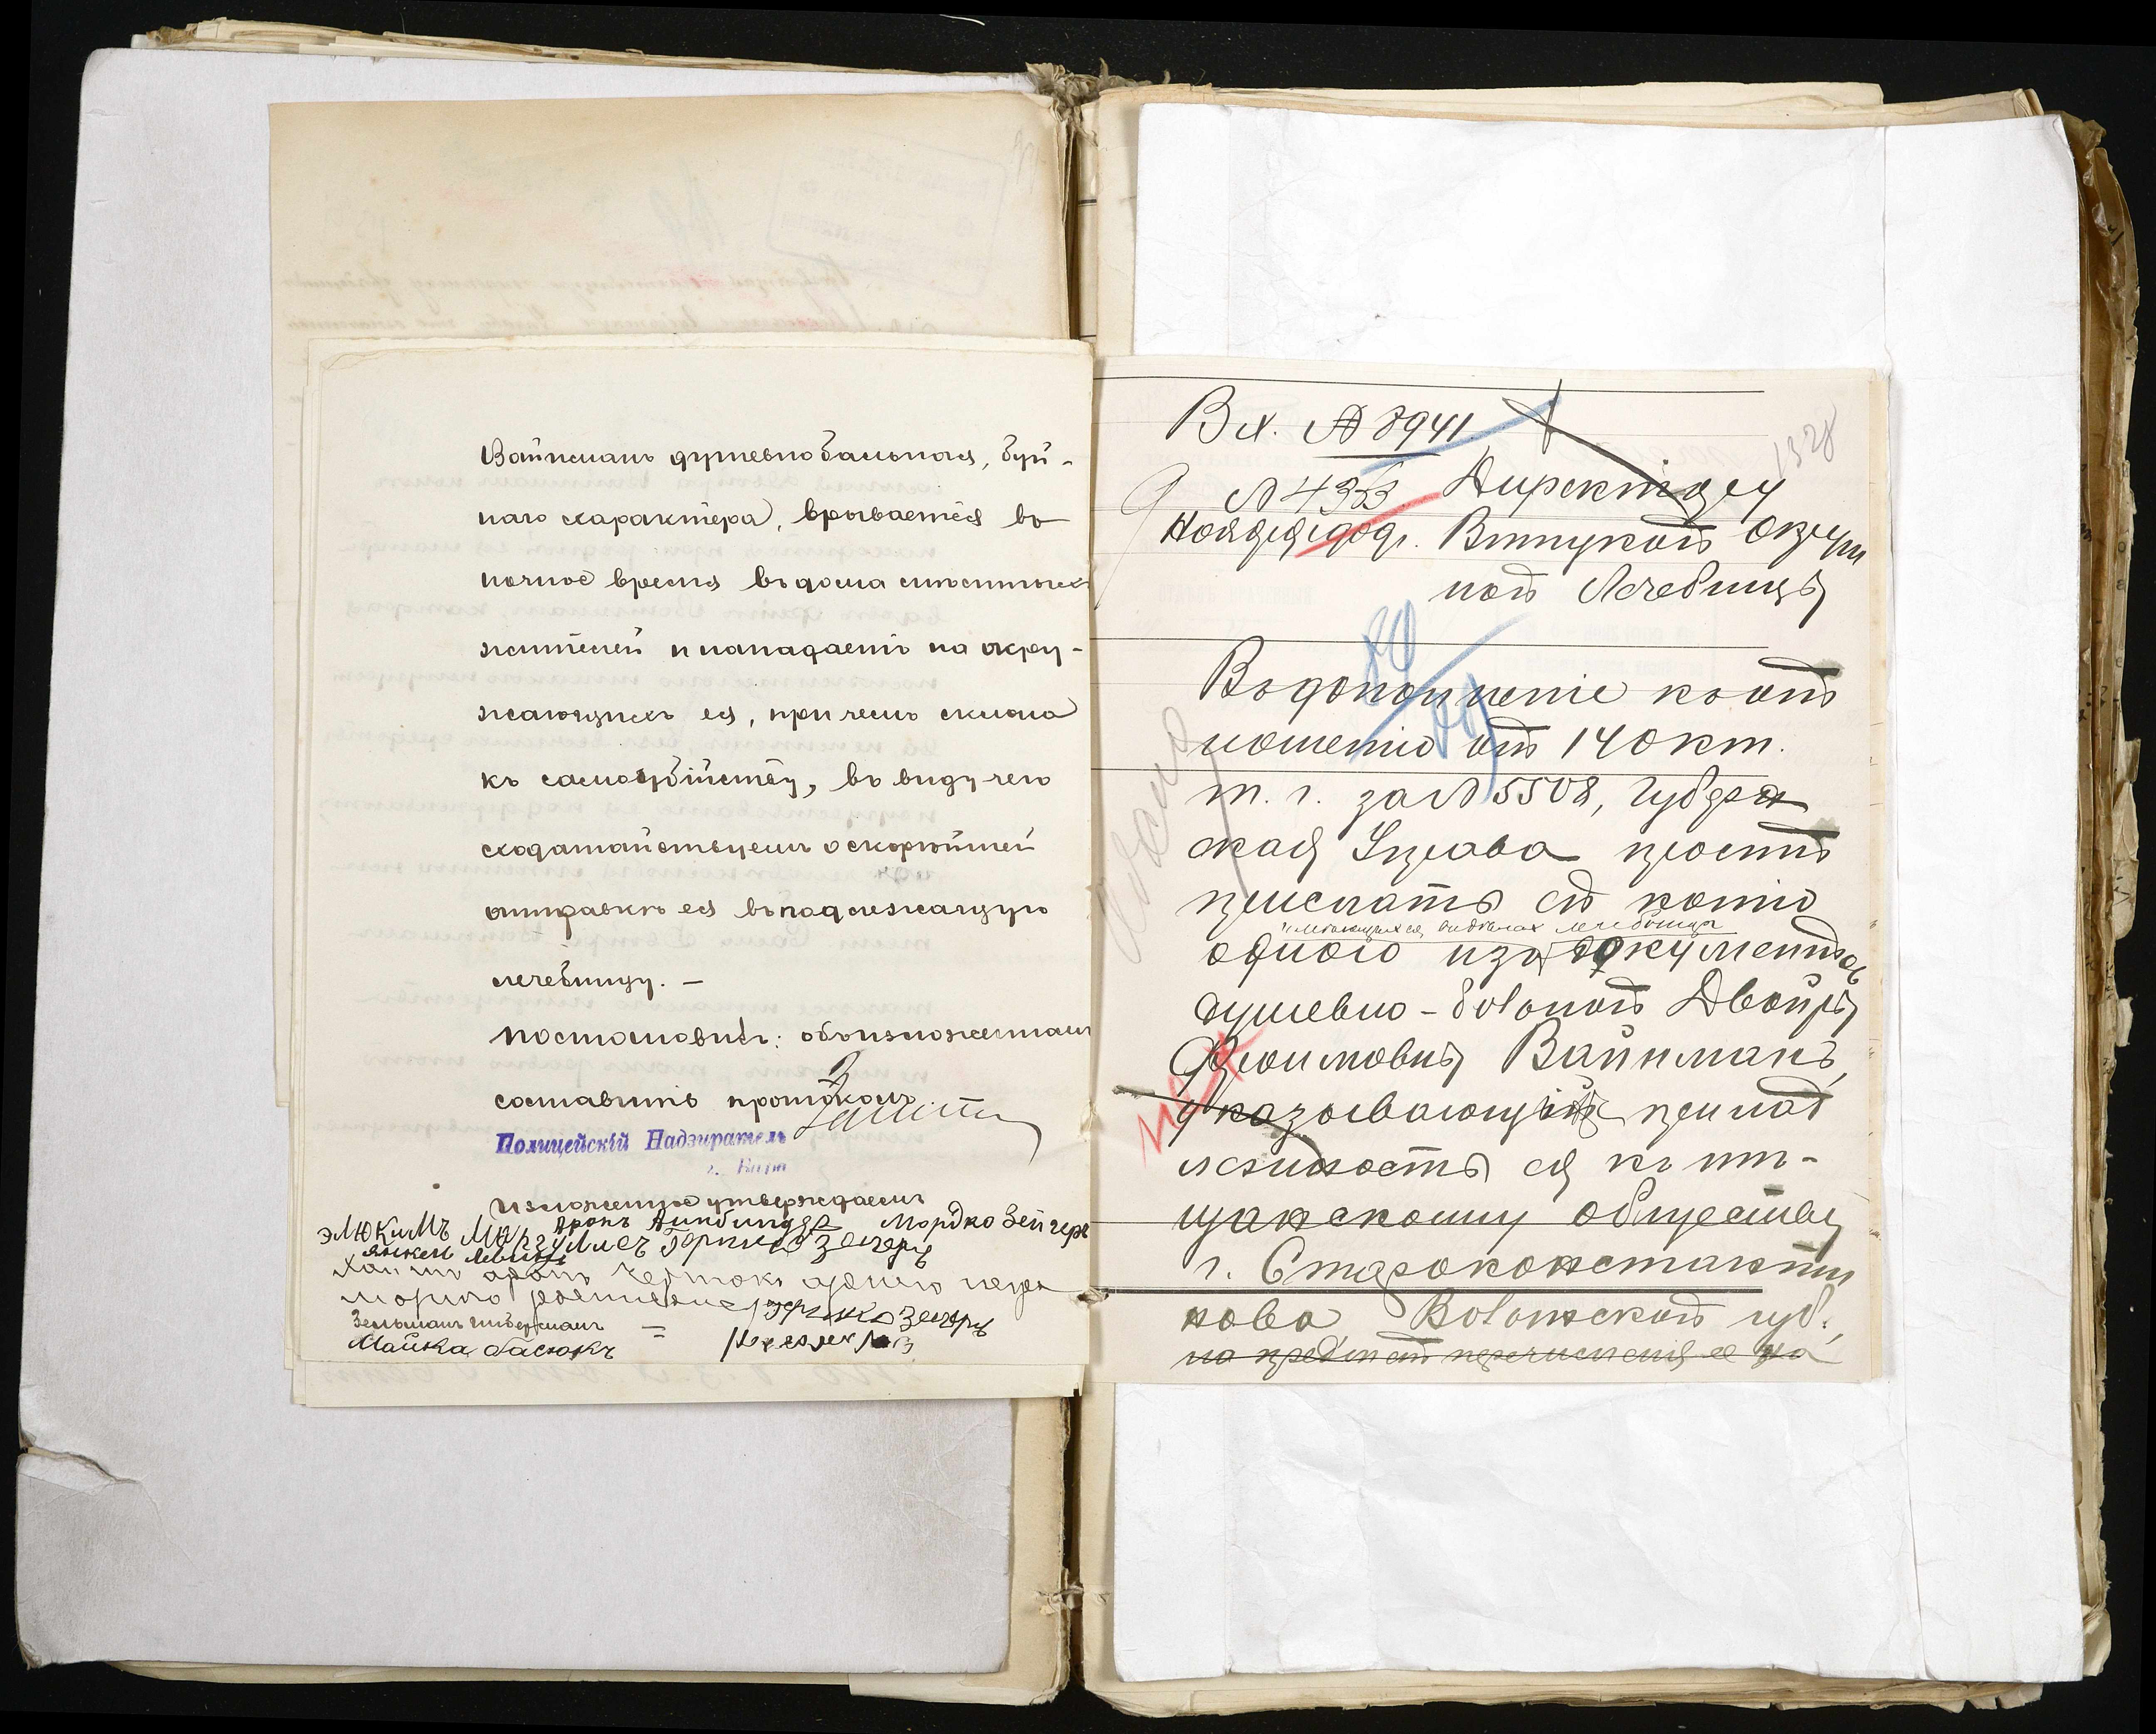 Вайнманъ душевнобольная, буй-
наго характера, врывается въ
ночное время въ дома мѣстныхъ
жителей и нападаетъ на окру-
жающихъ ея, при чемъ склона
къ самоубійству, въ виду чего
ходатайствуемъ о скорѣйшей
отправкѣ ея въ подлежащую
лечебницу. —
Постановилъ: объ изложенномъ
составить протоколъ.
Полицейскій Надзиратель
Изложенное утверждаемъ
Аронъ Мордко Зейгеръ
Янкель
Хаимъ
Мошко
Зельманъ
Майка Басюкъ
Вх. № 8941
1328
№ 433 Директору
Виницкой Окруж
ной Лечебницы
89
Въ дополненіе къ от
ношенію отъ 14 окт.
т. г. за № 5508, Губерн
ская Управа проситъ
прислать ей копію
имеющихся въ дѣлах лечебницы
одного изъ документовъ
душевно-больной Двойры
Вайнманъ,
указывающій принад
лежность ея къ мѣ-
щанскому обществу
г. Староконстанти
нова Волынской губ.,
на предметъ перечисленія ее на